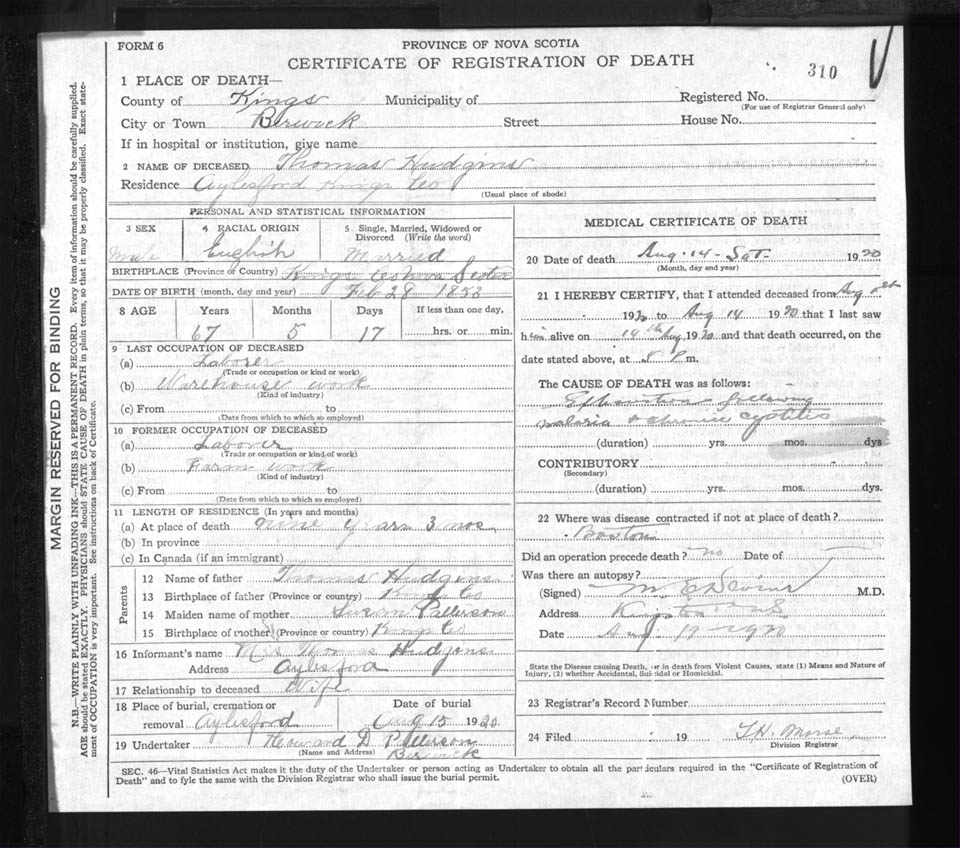 FORM 6
PROVINCE OF NOVA SCOTIA
CERTIFICATE OF REGISTRATION OF DEATH
310
1 PLACE OF DEATH—
County of Kings Municipality of Registered No.
(For use of Registrar General only)
City or Town Berwick Street House No.
If in hospital or institution, give name
2 NAME OF DECEASED Thomas Hudgins
Residence Aylesford Kings Co
(Usual place of abode)
PERSONAL AND STATISTICAL INFORMATION
3 SEX 4 RACIAL ORIGIN 5 Single, Married, Widowed or Divorced (Write the word)
Male English Married
BIRTHPLACE (Province or Country) Kings Co Nova Scotia
DATE OF BIRTH (month, day and year) Feb 28 1853
8 AGE Years Months Days If less than one day,
67 5 17 hrs. or min.
9 LAST OCCUPATION OF DECEASED
(a) Laborer
(Trade or occupation or kind or work)
(b) Warehouse work
(Kind of industry)
(c) From to
(Date from which to which so employed)
10 FORMER OCCUPATION OF DECEASED
(a) Laborer
(Trade or occupation or kind of work)
(b) Farm work
(Kind of industry)
(c) From to
(Date from which to which so employed)
11 LENGTH OF RESIDENCE (In years and months)
(a) At place of death nine years 3 mos
(b) In province
(c) In Canada (if an immigrant)
Parents
12 Name of father Thomas Hudgins
13 Birthplace of father (Province or country) Kings Co
14 Maiden name of mother Susan Patterson
15 Birthplace of mother (Province or country) Kings Co
16 Informant's name Mrs Thomas Hudgins
Address Aylesford
17 Relationship to deceased Wife
18 Place of burial, cremation or Date of burial
removal Aylesford Aug 15 1920
19 Undertaker Howard D Patterson
(Name and Address) Berwick
MEDICAL CERTIFICATE OF DEATH
20 Date of death Aug. 14 - Sat- 1920
(Month, day and year)
21 I HEREBY CERTIFY, that I attended deceased from Aug 1st
1920 to Aug 14 1920 that I last saw
him alive on 14th Aug 1920 and that death occurred, on the
date stated above, at P. m.
The CAUSE OF DEATH was as follows:
Exhaustion following
malaria & chronic cystitis
(duration) yrs. mos. dys
CONTRIBUTORY
(Secondary)
(duration) yrs. mos. dys.
22 Where was disease contracted if not at place of death?
Boston
Did an operation precede death? no Date of
Was there an autopsy?
(Signed) M.D.
Address Kingston NS
Date Aug 19 1920
State the Disease causing Death, or in death from Violent Causes, state (1) Means and Nature of
Injury, (2) whether Accidental, Suicidal or Homicidal.
23 Registrar's Record Number
24 Filed 19 Morse
Division Registrar
SEC. 46—Vital Statistics Act makes it the duty of the Undertaker or person acting as Undertaker to obtain all the particulars required in the "Certificate of Registration of
Death" and to fyle the same with the Division Registrar who shall issue the burial permit.
(OVER)
MARGIN RESERVED FOR BINDING
N.B.—WRITE PLAINLY WITH UNFADING INK—THIS IS A PERMANENT RECORD. Every item of information should be carefully supplied.
AGE should be stated EXACTLY. PHYSICIANS should STATE CAUSE OF DEATH in plain terms, so that it may be properly classified. Exact state-
ment of OCCUPATION is very important. See instructions on back of Certificate.